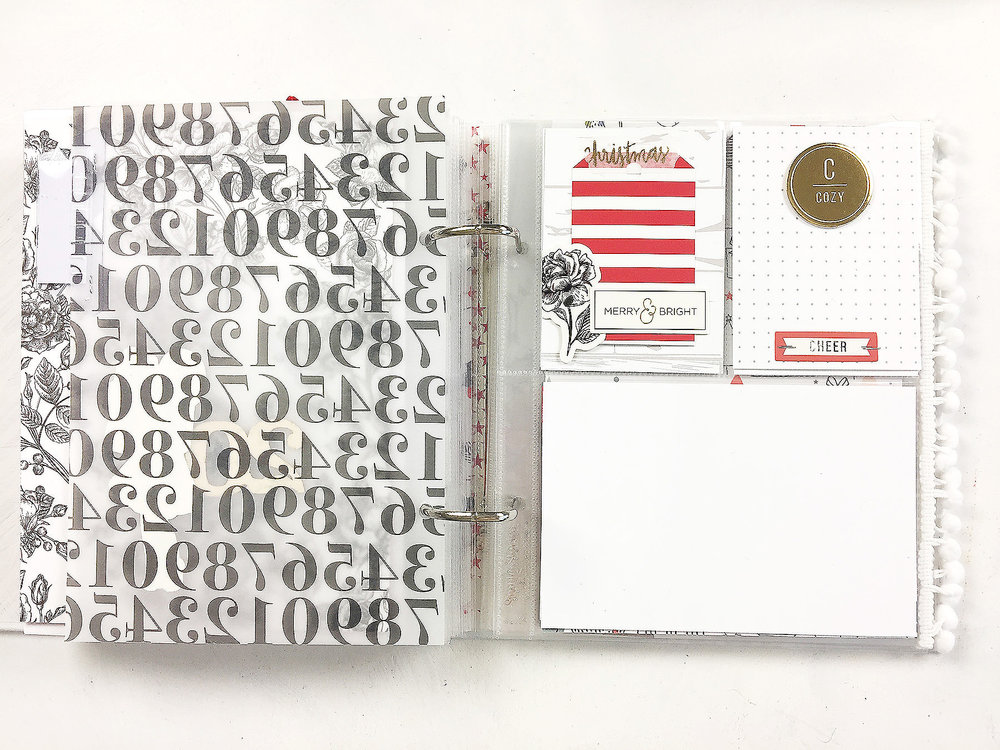 2345678901
1234567890
678901234
345678901
789012345
2345678901
1234567890
678901234
345678901
789012345
christmas
MERRY & BRIGHT
C
COZY
CHEER